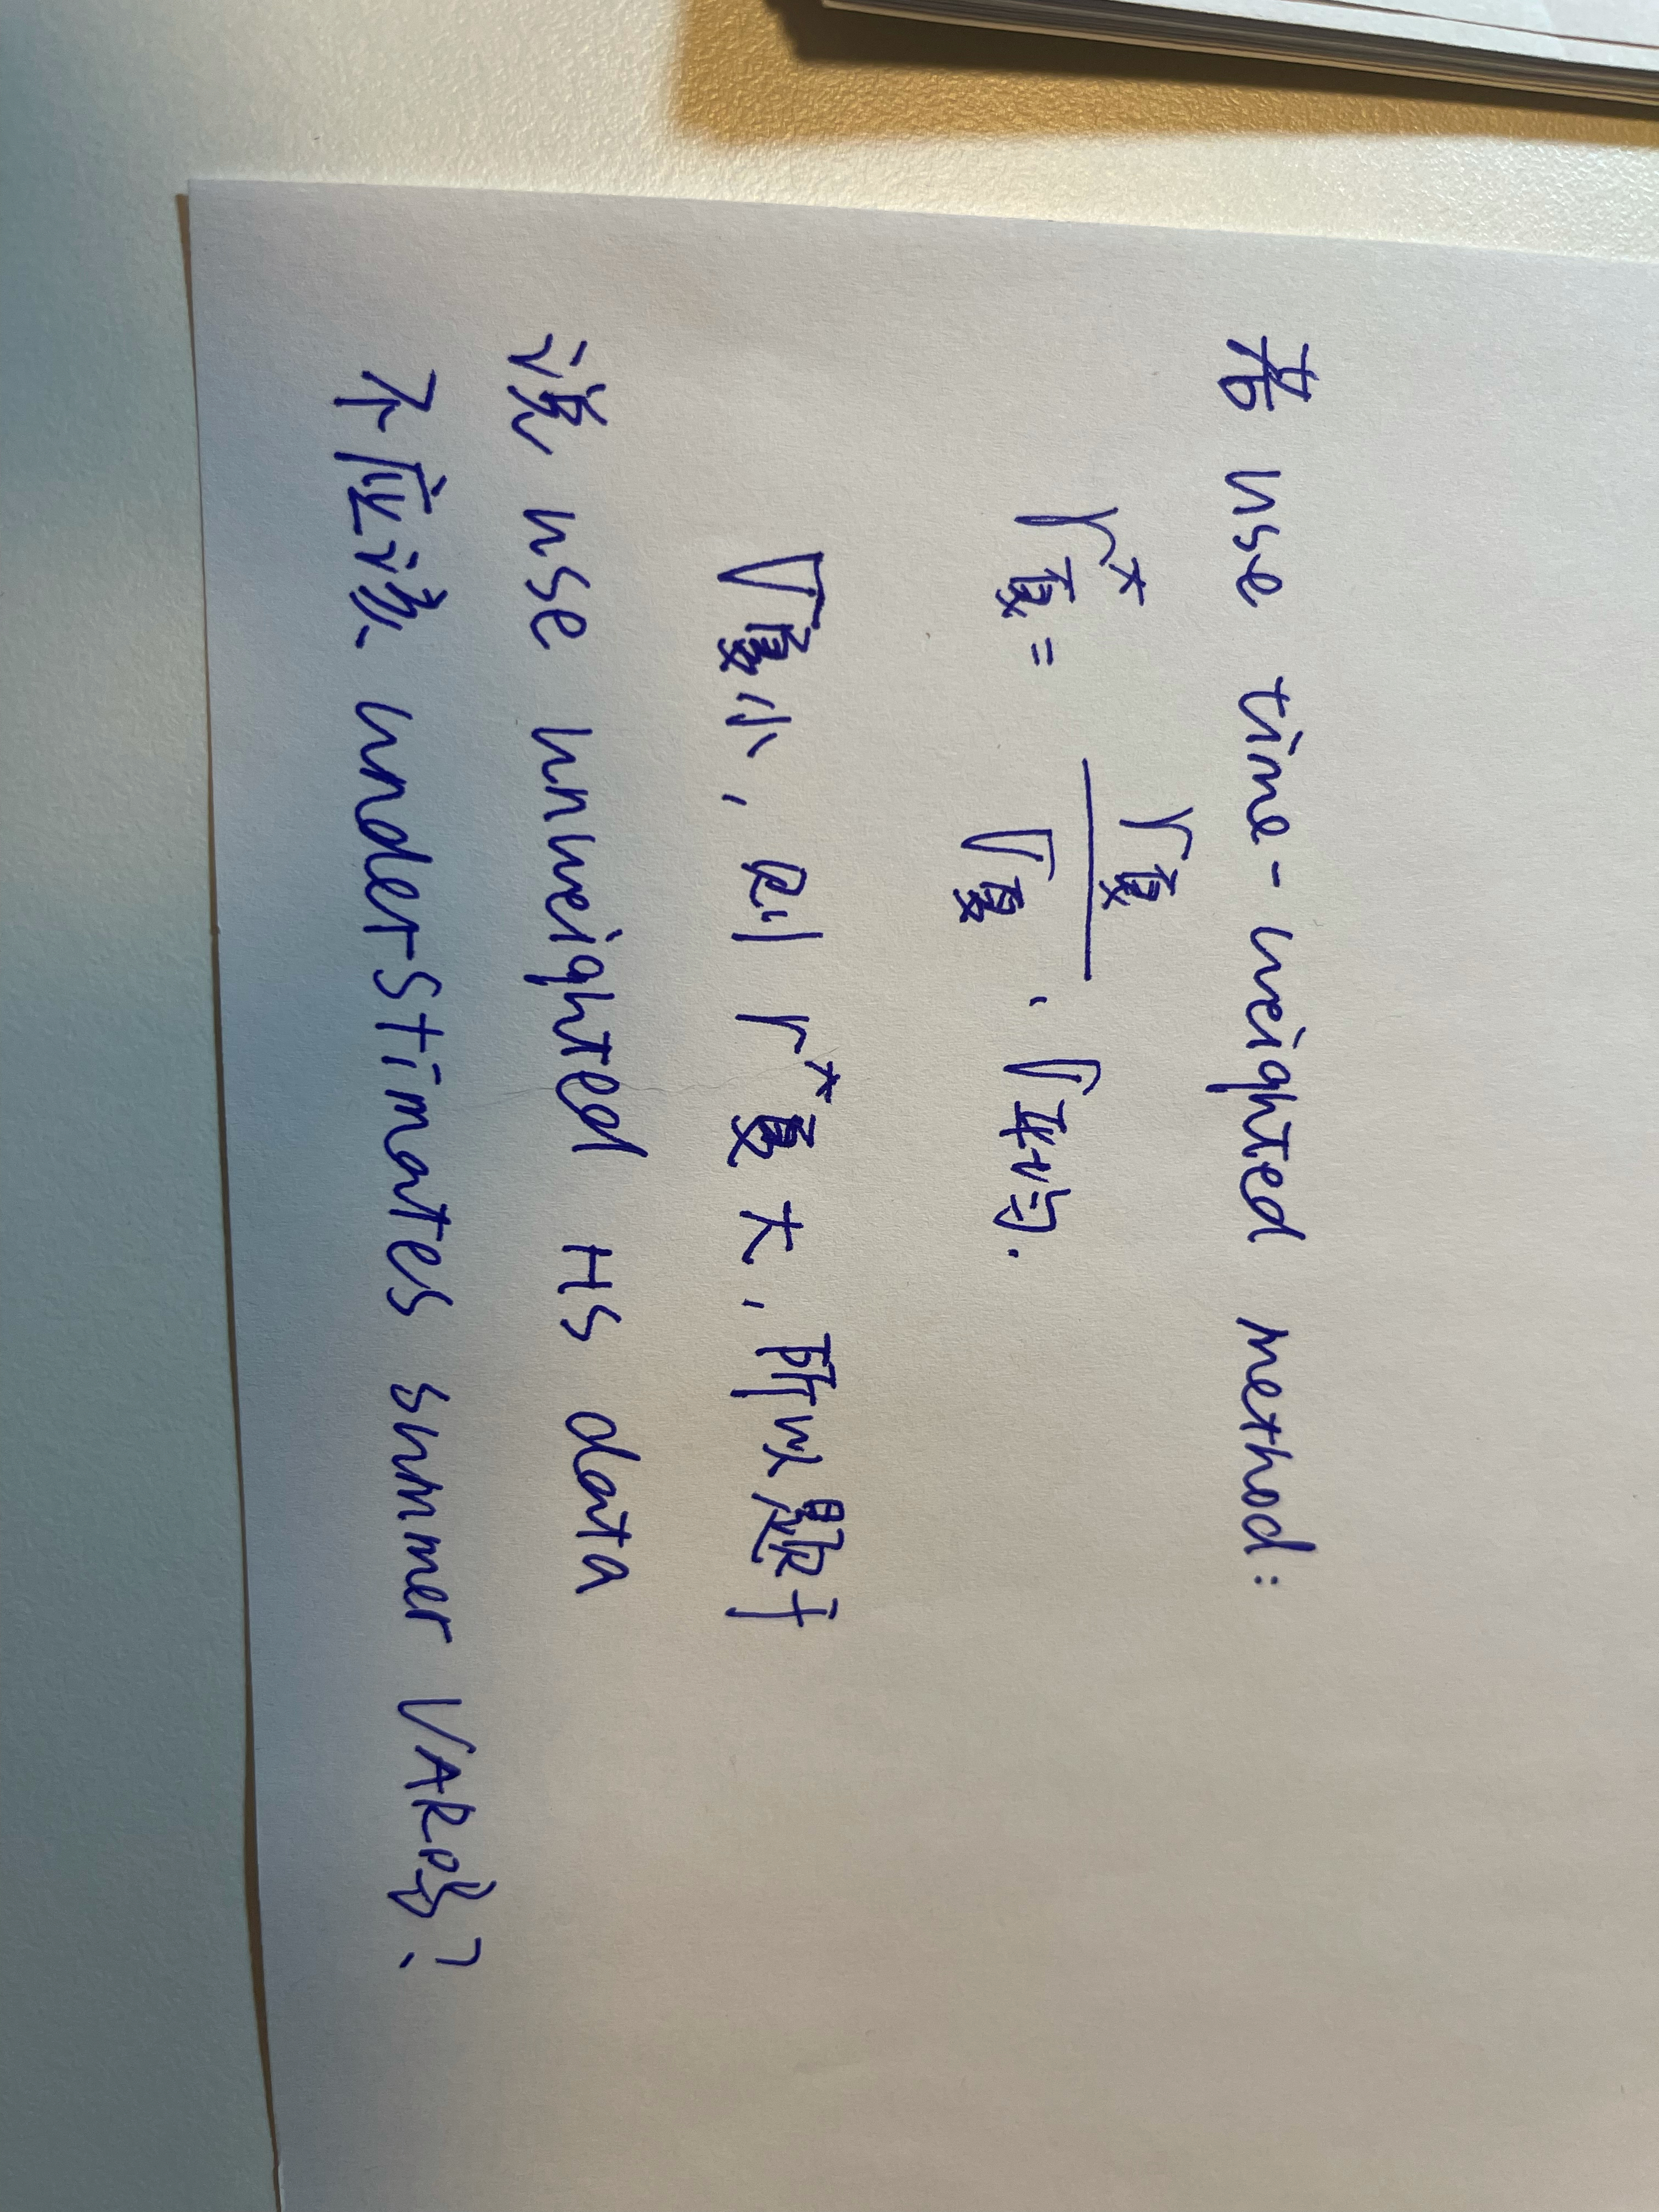 若 use time-weighted method:
r*夏 = r夏 / σ夏 · σ平均.
σ夏小, 则 r*夏大, 所以题干
说 use unweighted HS data
不应该 understimates summer VAR吗?